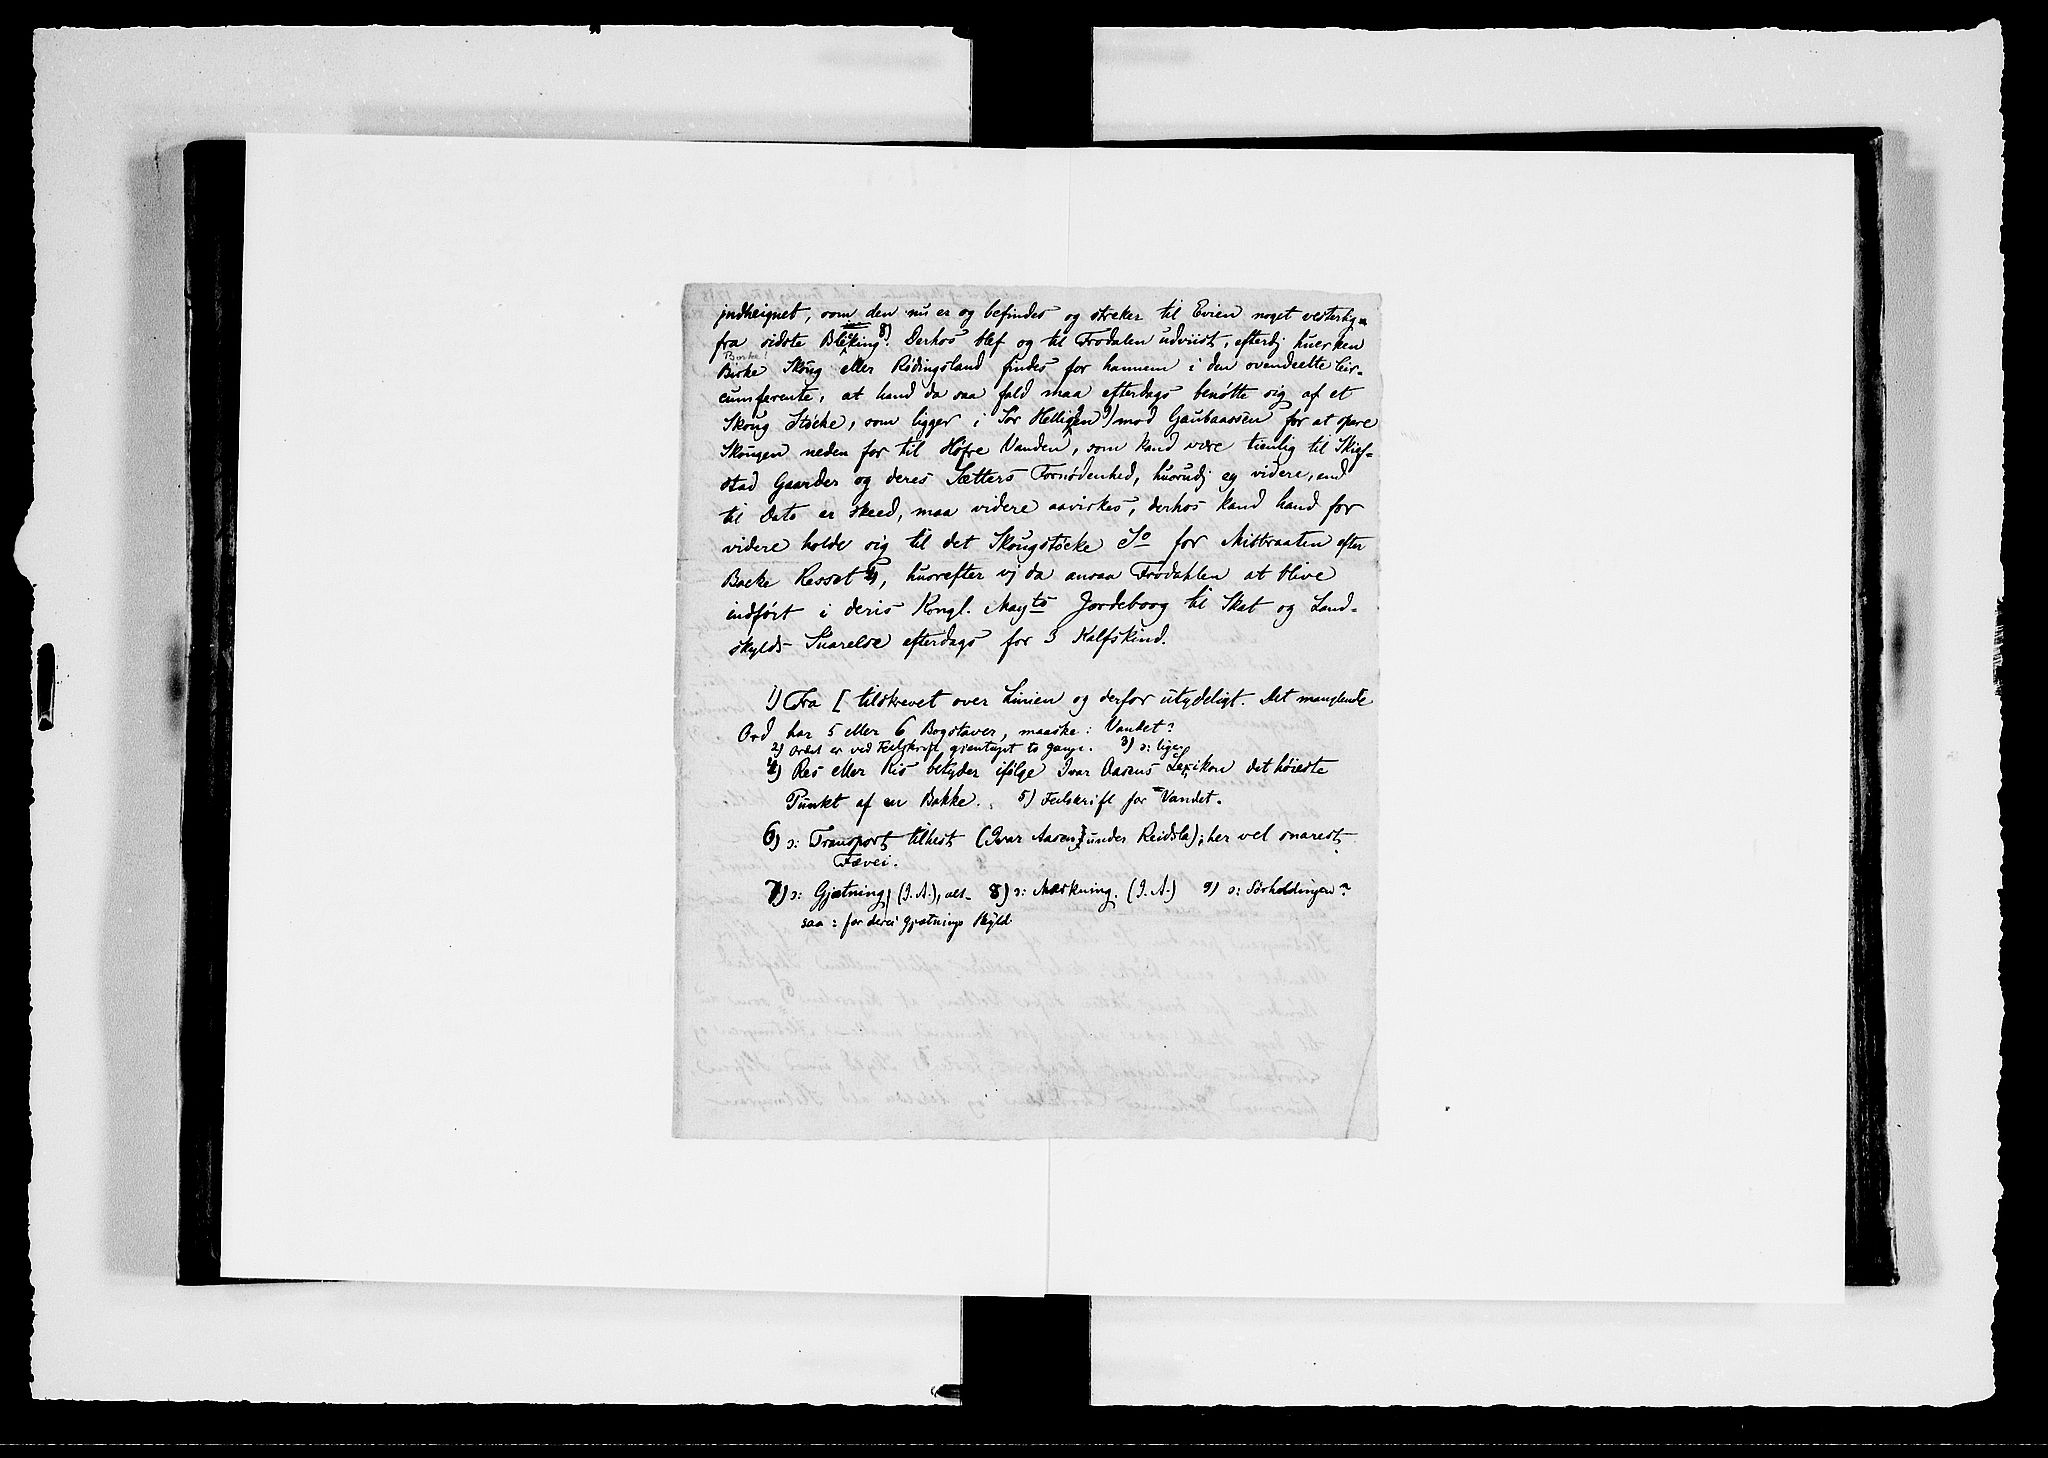 jndheignet, som den nu er og befindes og streker til Evien noget vesterlig
fra sidste Bleking 8). Derhos blef og til Frodalen udviist, efterdj huerken
Borke!
Birke Skoug eller Rødingsland findes for hannem i den ovendeelte Cir-
cumferente, at hand da saa fald maa efterdags benøtte sig af et
Skoug Støcke, som ligger i Sør Helligen 9) mod Gaubaassen for at spare
Skougen neden for til Høfre Vanden, som kand være tienlig til Skief-
stad Gaarder og deres Sætters Fornødenhed, huorudj ey videre, end
til Dato er skeed, maa videre aavirkes, derhos kand hand for
videre holde sig til det Skougstøcke So for Mistraaten efter
Backe Resset 4), huorefter vj da ansaa Frødahlen at blive
indført i deris Kongl. Mayts Jordeboog til Skat og Land-
skylds Suarelse efterdags for 3 Kalfskind.
1) Fra [ tilskrevet over Linien og derfor utydeligt. Det manglende
Ord har 5 eller 6 Bogstaver, maaske: Vandet?
2) Ordet er ved Feilskrift gjentaget to gange. 3) ɔ: lige
4) Res eller Ris betyder ifølge Ivar Aasens Lexikon det høieste
Punkt af en Bakke. 5) Feilskrift for Vandet.
6) ɔ: Transport tilhest (Ivar Aasen under Reidsla); her vel snarest
Fævei.
7) ɔ: Gjætning (I. A.), alt- 8) ɔ: Mærkning. (I. A.) 9) ɔ: Sørholdingen?
saa: for derei gjætnings Skyld